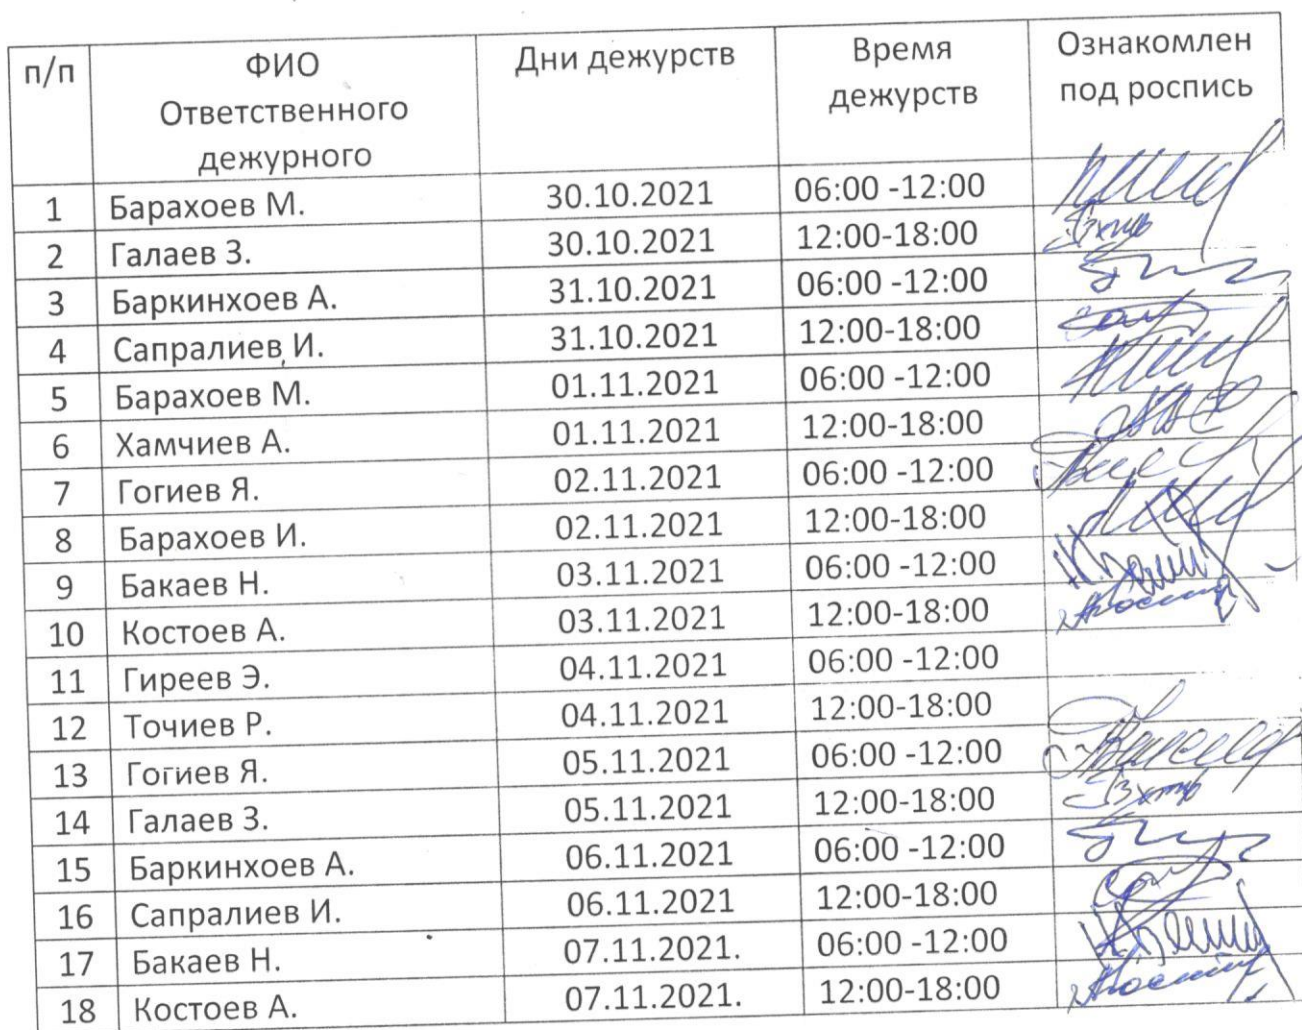 п/п ФИО Ответственного дежурного Дни дежурств Время дежурств Ознакомлен под роспись
1 Барахоев М. 30.10.2021 06:00 -12:00
2 Галаев З. 30.10.2021 12:00-18:00
3 Баркинхоев А. 31.10.2021 06:00 -12:00
4 Сапралиев И. 31.10.2021 12:00-18:00
5 Барахоев М. 01.11.2021 06:00 -12:00
6 Хамчиев А. 01.11.2021 12:00-18:00
7 Гогиев Я. 02.11.2021 06:00 -12:00
8 Барахоев И. 02.11.2021 12:00-18:00
9 Бакаев Н. 03.11.2021 06:00 -12:00
10 Костоев А. 03.11.2021 12:00-18:00
11 Гиреев Э. 04.11.2021 06:00 -12:00
12 Точиев Р. 04.11.2021 12:00-18:00
13 Гогиев Я. 05.11.2021 06:00 -12:00
14 Галаев З. 05.11.2021 12:00-18:00
15 Баркинхоев А. 06.11.2021 06:00 -12:00
16 Сапралиев И. 06.11.2021 12:00-18:00
17 Бакаев Н. 07.11.2021. 06:00 -12:00
18 Костоев А. 07.11.2021. 12:00-18:00